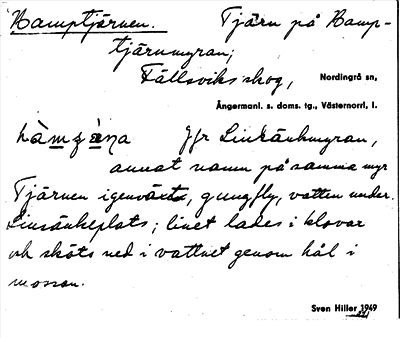 Hamptjärnen. Tjärn på Hamp-
tjärnmyran;
Fällsviks skog, Nordingrå sn,
Ångermanl. s. doms. tg., Västernorrl. l.
Jfr Linsänkmyran,
annat namn på samma myr
Tjärnen igenväxt, gungfly, vatten under.
Linsänkeplats; linet lades i klovar
och sköts ned i vattnet genom hål i
mossen.
Sven Hiller 1949